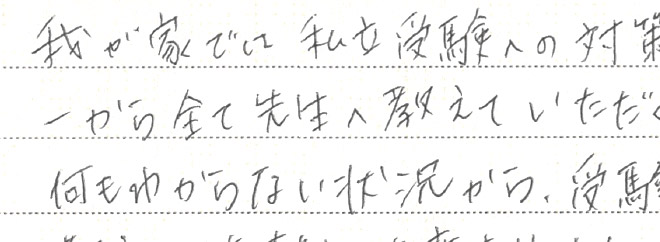 我が家では私立受験への対策
一から全て先生へ教えていただく
何もわからない状況から、受験